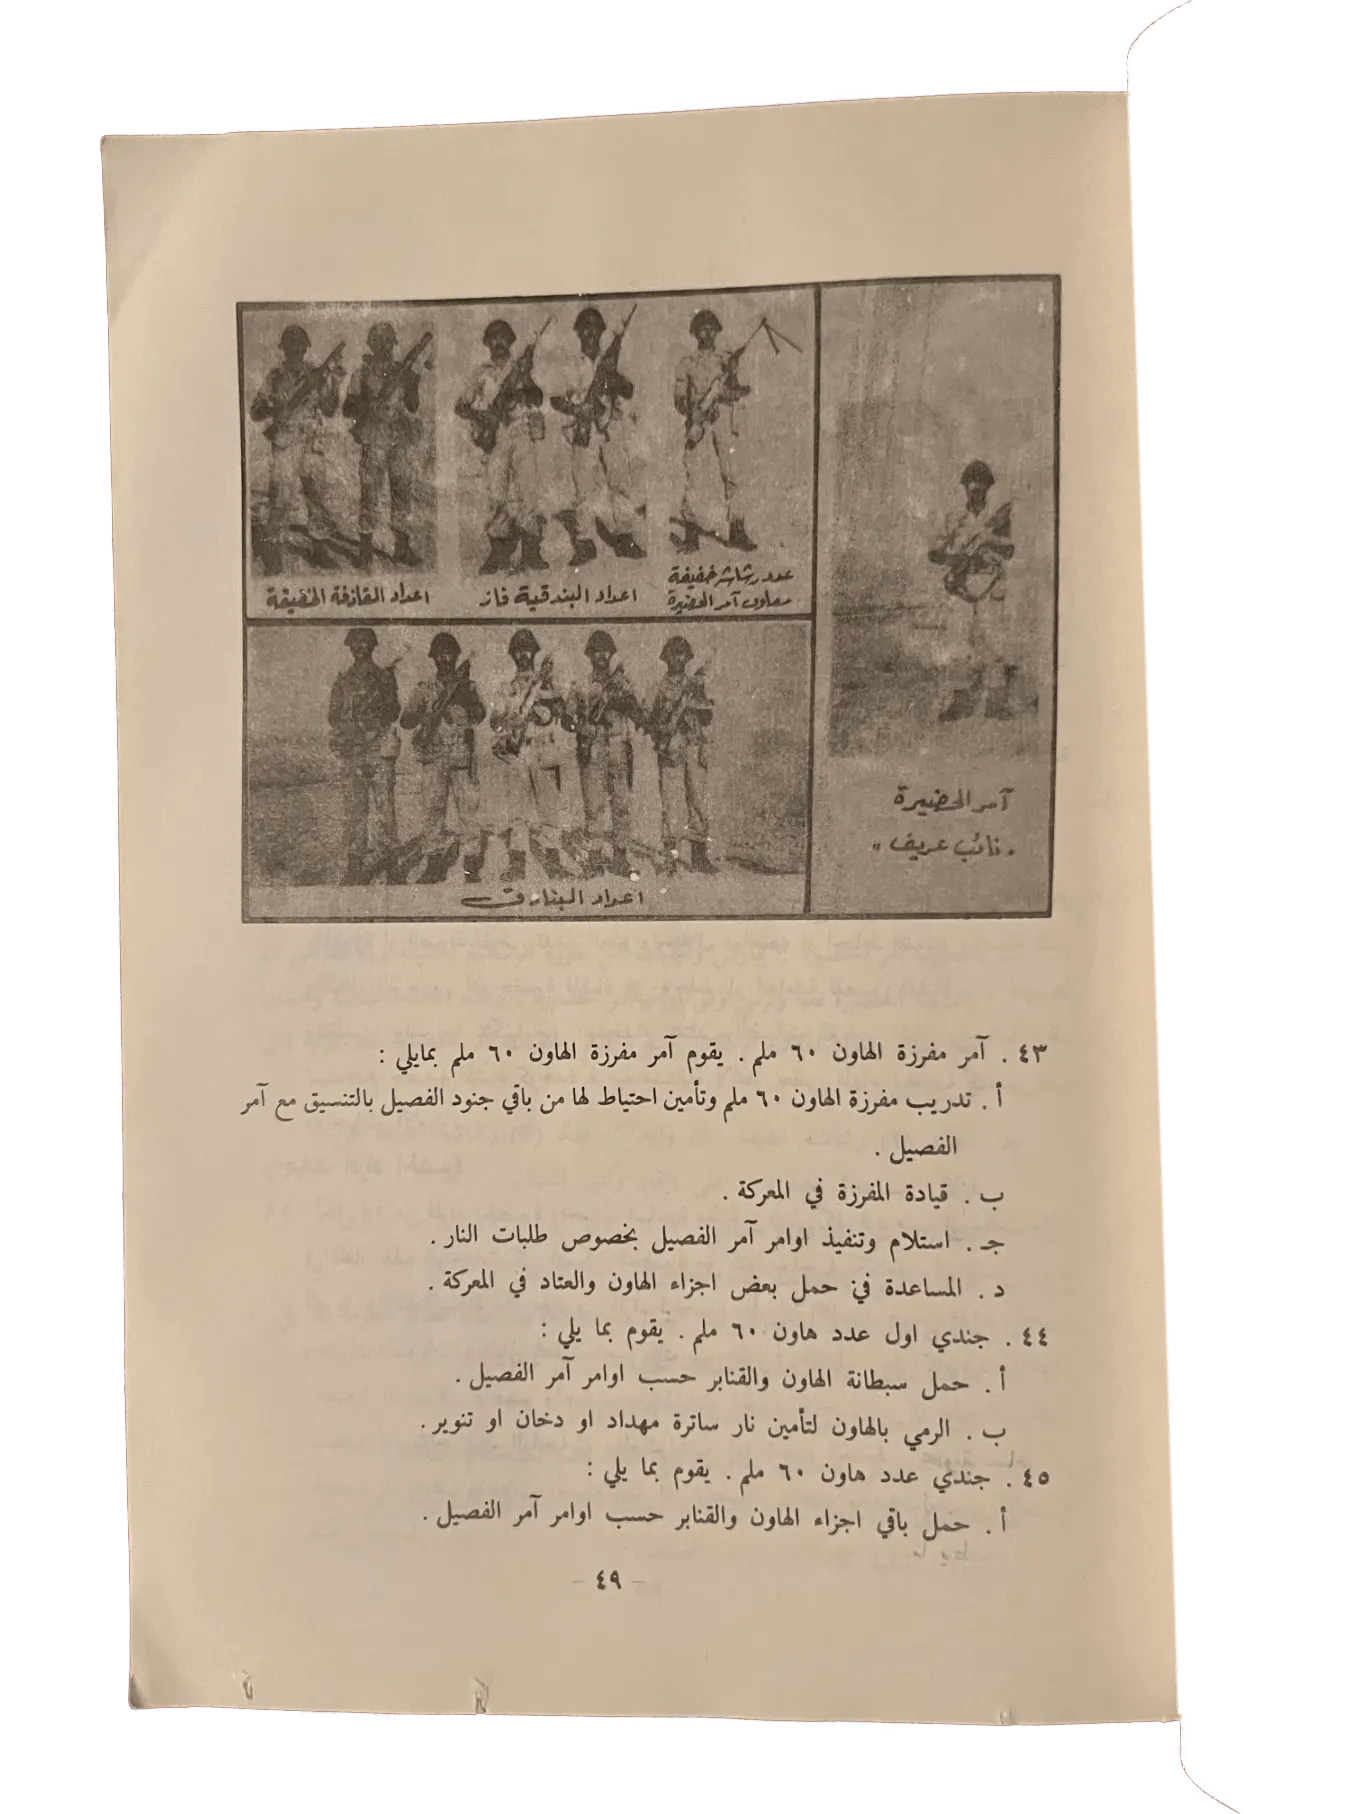 اعداد القاذفة الخفيفة
اعداد البندقية قاذ
عدد رشاشة خفيفة
معاون آمر الحضيرة
آمر الحضيرة
« نائب عريف »
اعداد البنادق
٤٣ . آمر مفرزة الهاون ٦٠ ملم . يقوم آمر مفرزة الهاون ٦٠ ملم بمايلي :
أ . تدريب مفرزة الهاون ٦٠ ملم وتأمين احتياط لها من باقي جنود الفصيل بالتنسيق مع آمر
الفصيل .
ب . قيادة المفرزة في المعركة .
جـ . استلام وتنفيذ اوامر آمر الفصيل بخصوص طلبات النار .
د . المساعدة في حمل بعض اجزاء الهاون والعتاد في المعركة .
٤٤ . جندي اول عدد هاون ٦٠ ملم . يقوم بما يلي :
أ . حمل سبطانة الهاون والقنابر حسب اوامر آمر الفصيل .
ب . الرمي بالهاون لتأمين نار ساترة مهداد او دخان او تنوير .
٤٥ . جندي عدد هاون ٦٠ ملم . يقوم بما يلي :
أ . حمل باقي اجزاء الهاون والقنابر حسب اوامر آمر الفصيل .
– ٤٩ –